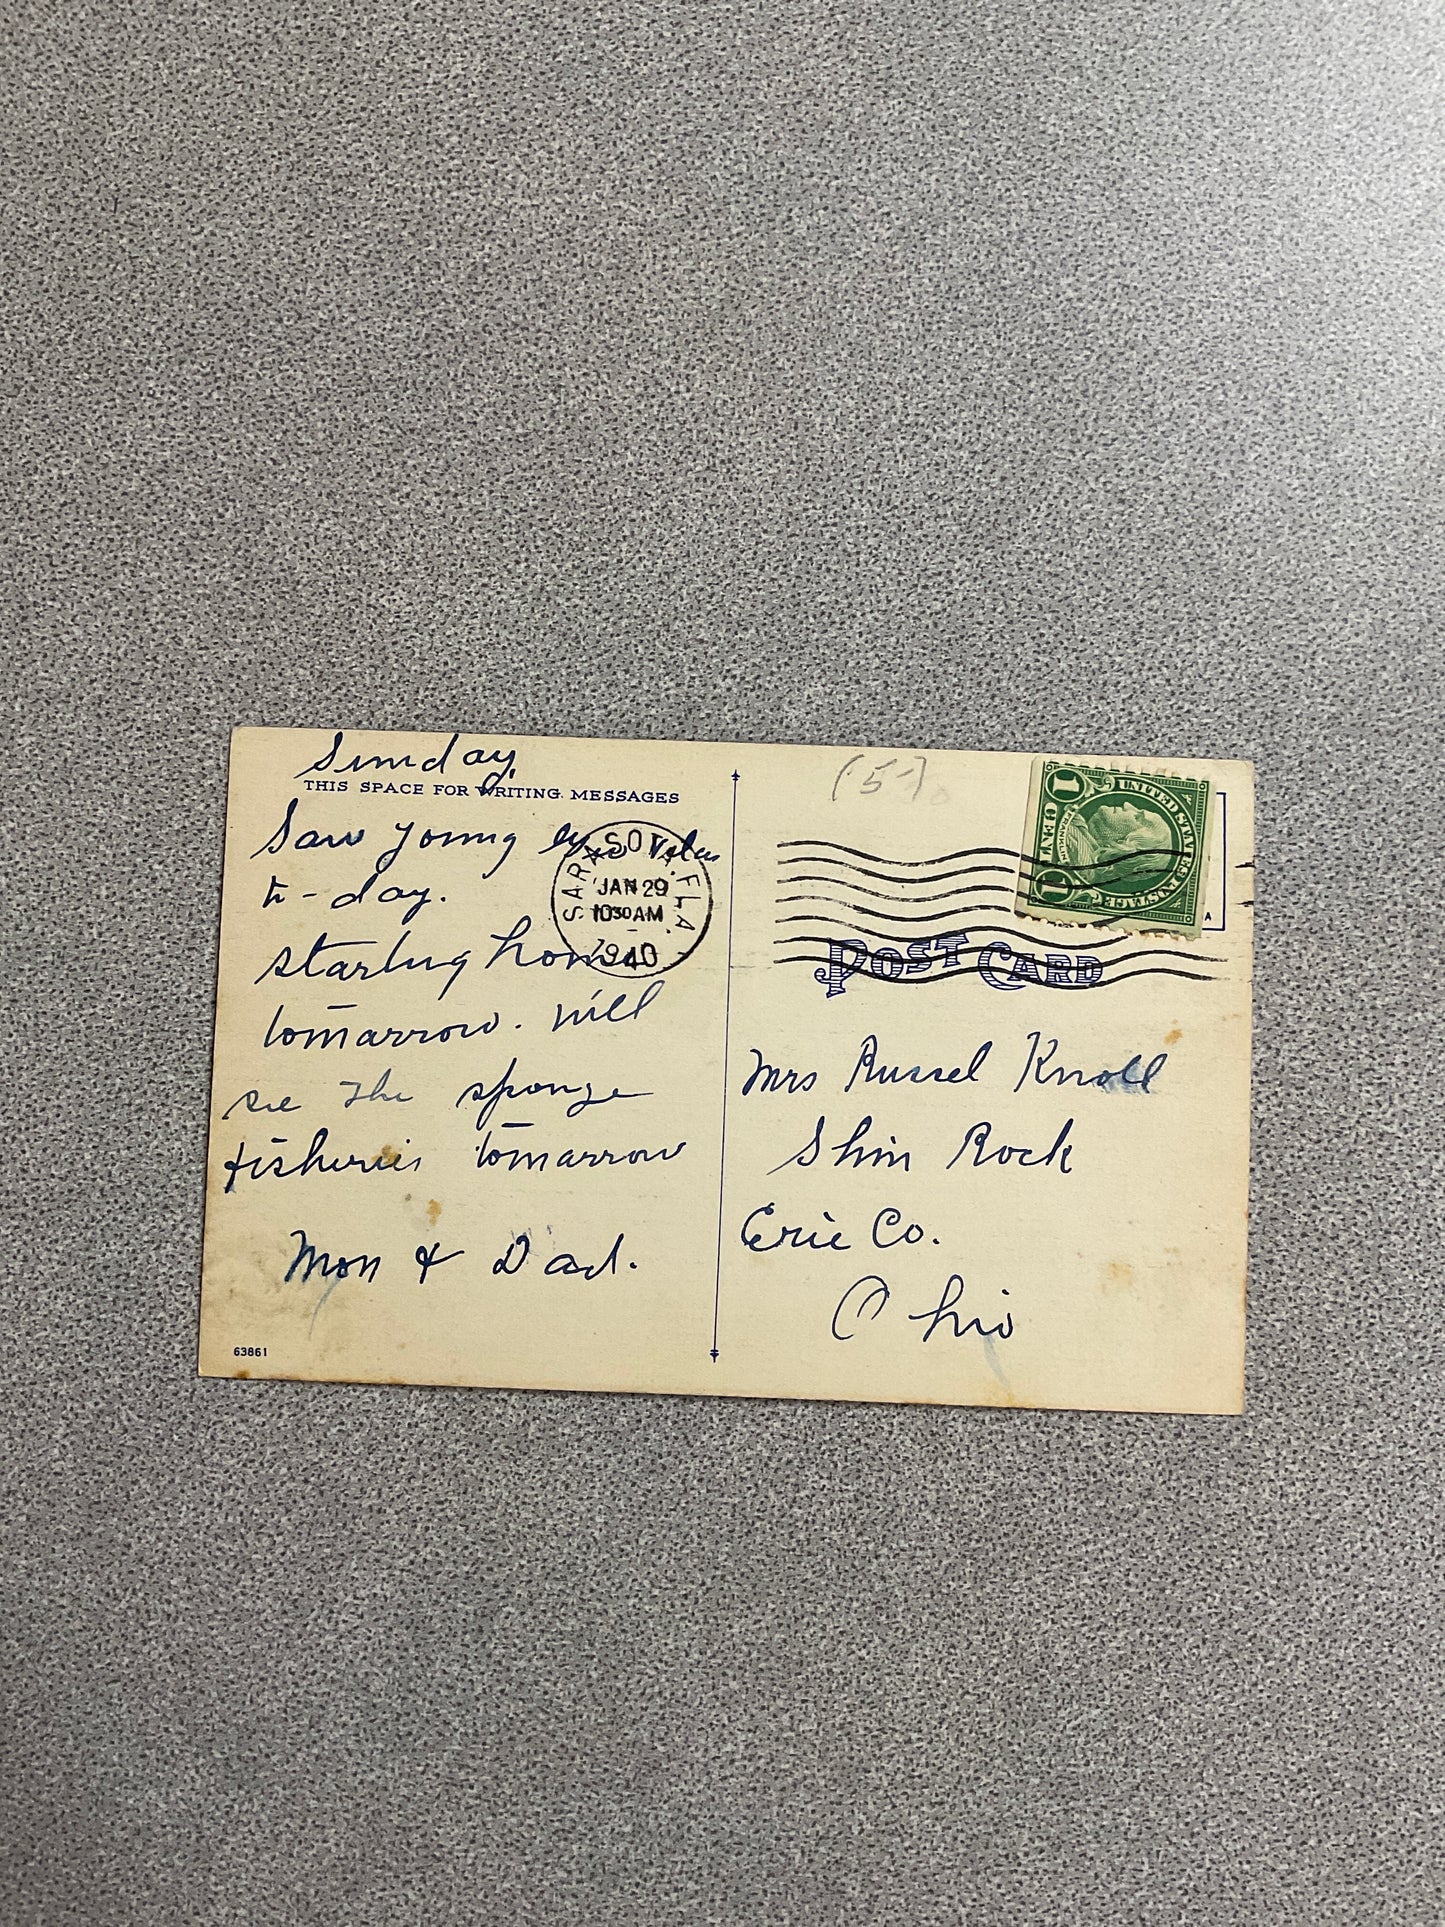 Sunday,
THIS SPACE FOR WRITING MESSAGES
Saw young
to-day.
starting home
tomarrow. will
see the sponge
fisheries tomarrow
Mom & Dad.
63861
SARASOTA, FLA.
JAN 29
10 30 AM
1940
(5-)
UNITED STATES POSTAGE
FRANKLIN
1 CENT 1
POST CARD
Mrs Russel Knoll
Shin Rock
Erie Co.
Ohio
A